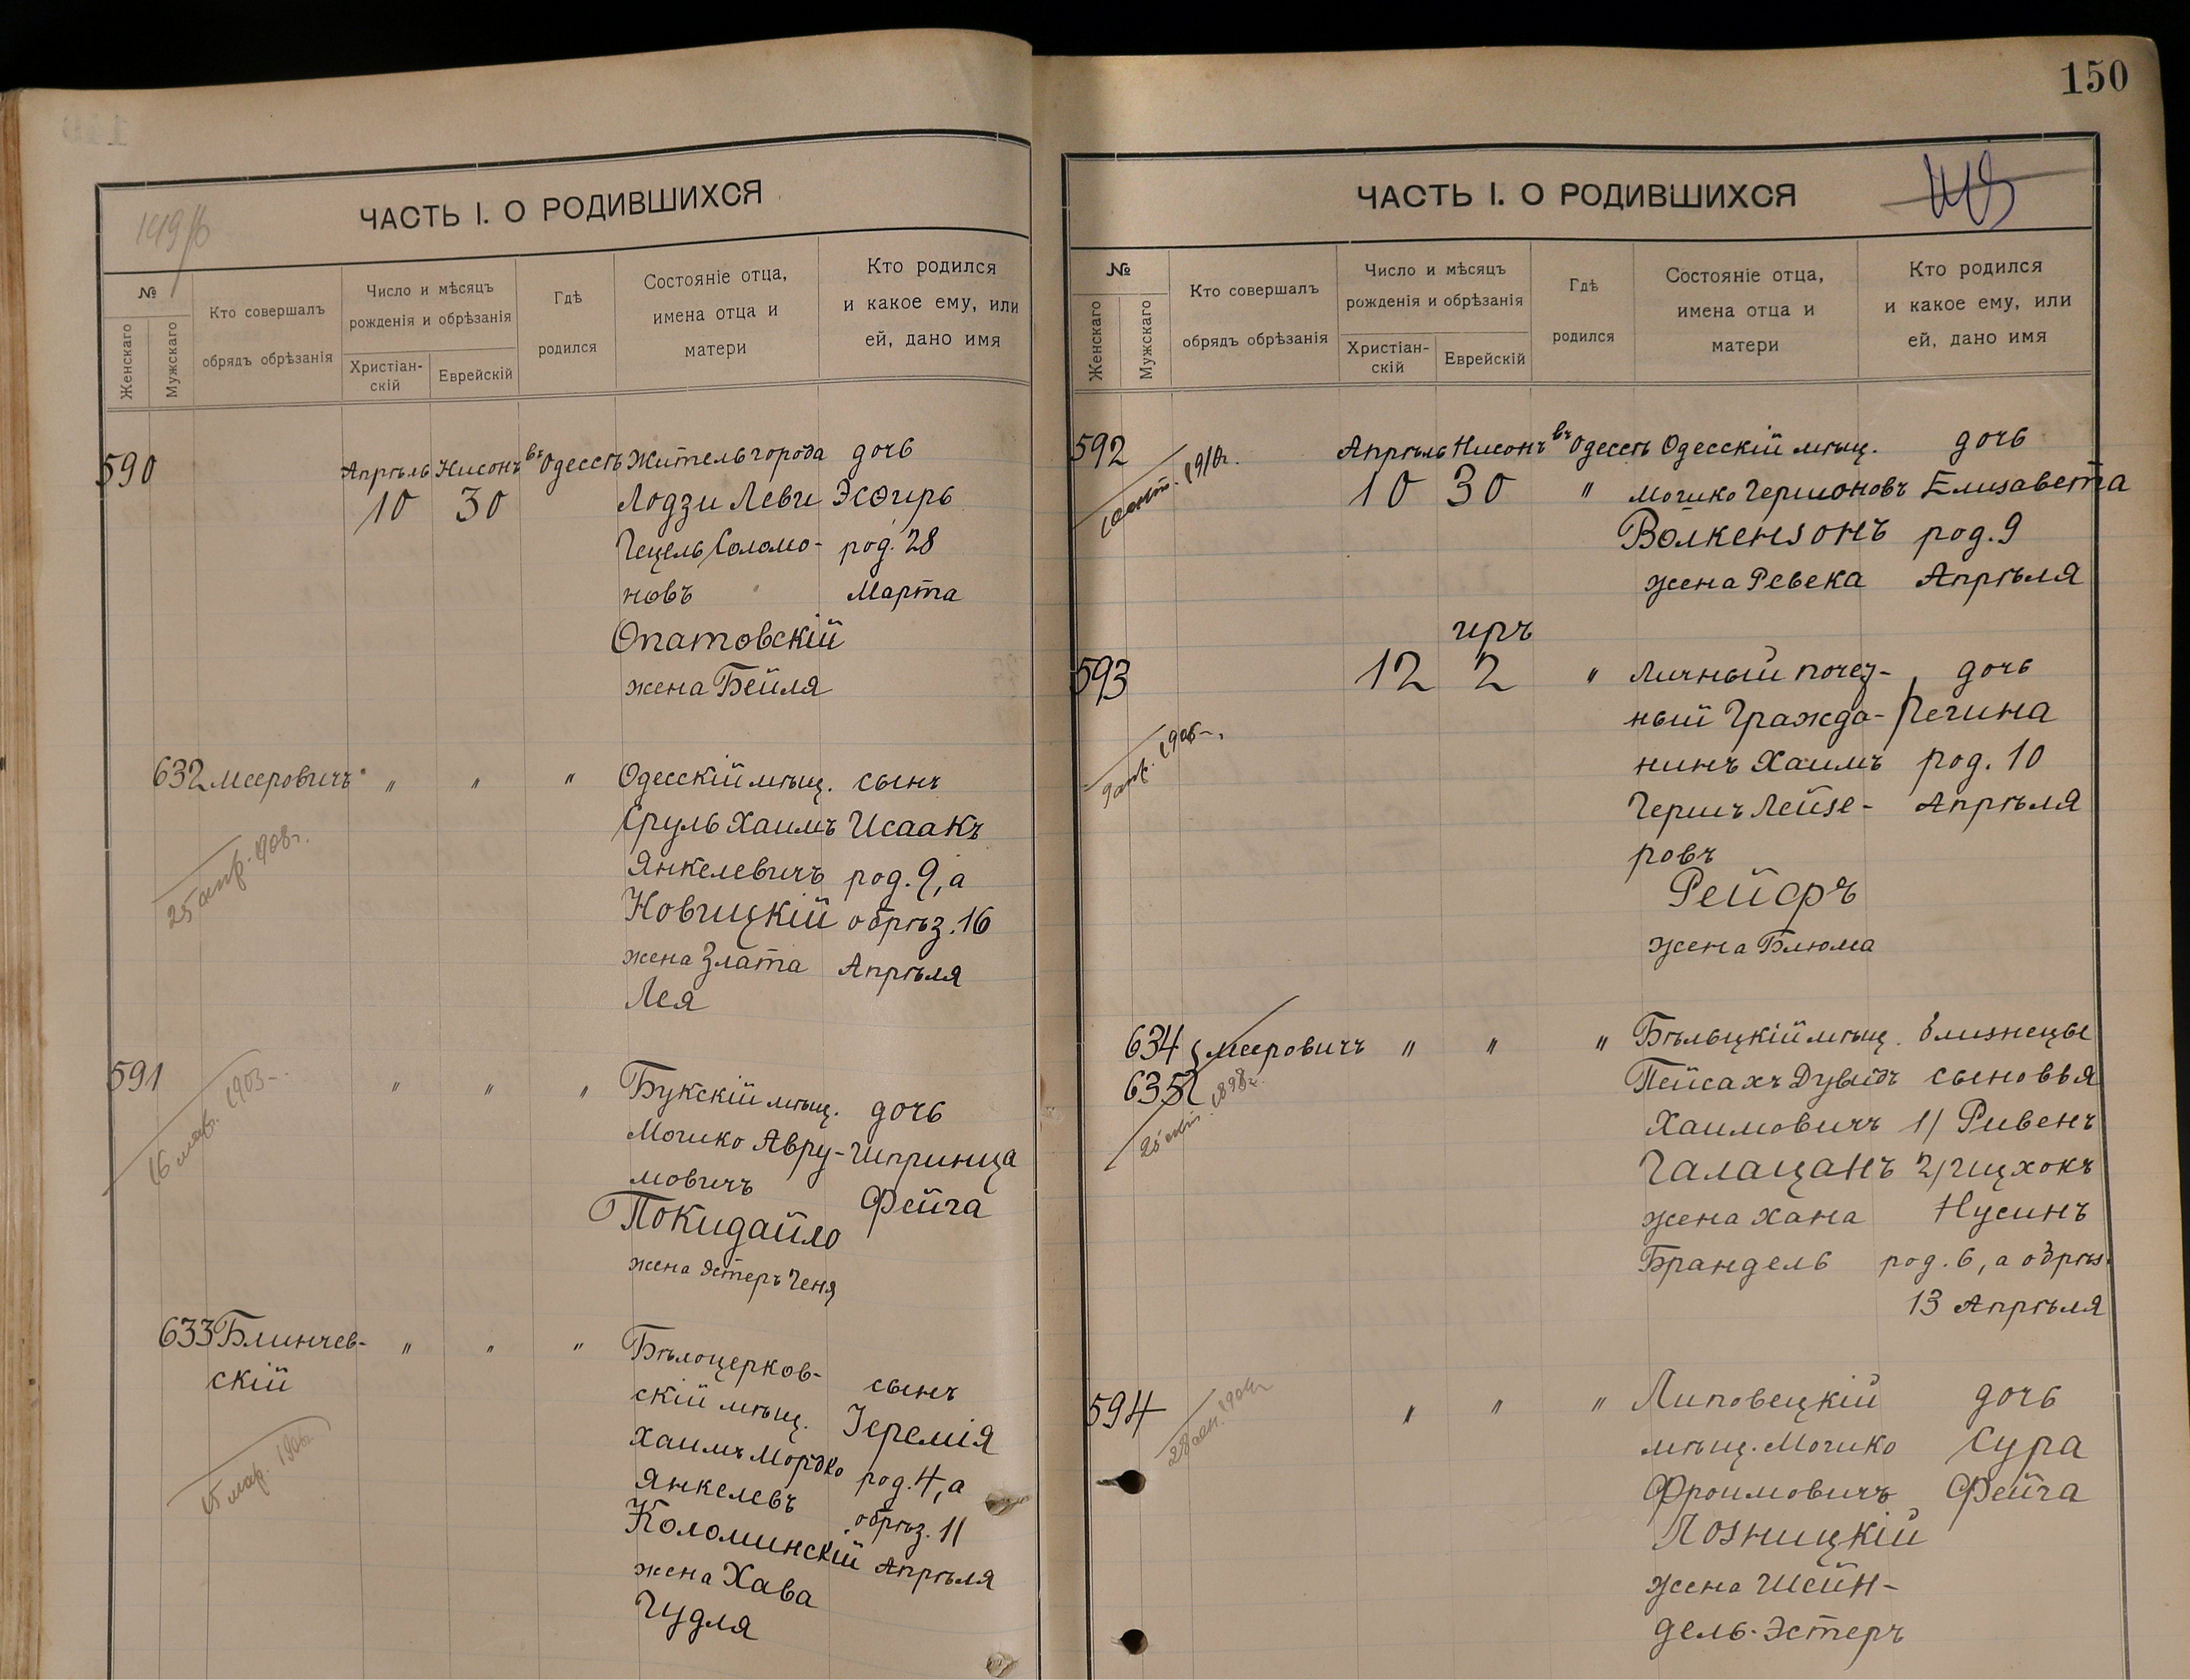 150
ЧАСТЬ I. О РОДИВШИХСЯ
149/б
№
Женскаго
Мужскаго
Кто совершалъ
обрядъ обрѣзанія
Число и мѣсяцъ
рожденія и обрѣзанія
Христіан-
скій
Еврейскій
Гдѣ
родился
Состояніе отца,
имена отца и
матери
Кто родился
и какое ему, или
ей, дано имя
590 Апрѣль Нисонъ въ Одессѣ Житель города дочь
10 30 Лодзи Леви Эсѳирь
Гецель Соломо- род. 28
новъ Марта
Опатовскій
жена Бейля
632 Мееровичъ " " " Одесскій мѣщ. сынъ
Сруль Хаимъ Исаакъ
Янкелевичъ род. 9, а
Новицкій обрѣз. 16
жена Злата Апрѣля
Лея
25 апр. 908 г.
591 " " " Букскій мѣщ. дочь
Мошко Авру- Шпринца
мовичъ Фейга
Покидайло
жена Эстеръ Геня
16 мар. 1903
633 Блинчев- " " " Бѣлоцерков-
скій скій мѣщ. сынъ
Хаимъ Мордко Іеремія
Янкелевъ род. 4, а
Коломинскій обрѣз. 11
жена Хава Апрѣля
Гудля
15 мар. 1906
ЧАСТЬ I. О РОДИВШИХСЯ
№
Женскаго
Мужскаго
Кто совершалъ
обрядъ обрѣзанія
Число и мѣсяцъ
рожденія и обрѣзанія
Христіан-
скій
Еврейскій
Гдѣ
родился
Состояніе отца,
имена отца и
матери
Кто родился
и какое ему, или
ей, дано имя
592 Апрѣль Нисонъ въ Одессѣ Одесскій мѣщ. дочь
10 30 " Мошко Гершоновъ Елизавета
Волкензонъ род. 9
жена Ревека Апрѣля
1910 г.
иръ
593 12 2 " Личный почет- дочь
ный Гражда- Регина
нинъ Хаимъ род. 10
Гершъ Лейзе- Апрѣля
ровъ
Рейфъ
жена Блюма
634 Мееровичъ " " " Бѣльцкій мѣщ. близнецы
635 Пейсахъ Дувидъ сыновья
Хаимовичъ 1/ Ривенъ
Галацанъ 2/ Ицхокъ
жена Хана Нусинъ
Брандель род. 6, а обрѣз.
13 Апрѣля
1898 г.
594 " " " Липовецкій дочь
мѣщ. Мошко Сура
Фроимовичъ Фейга
Лозницкій
жена Шейн-
дель-Эстеръ